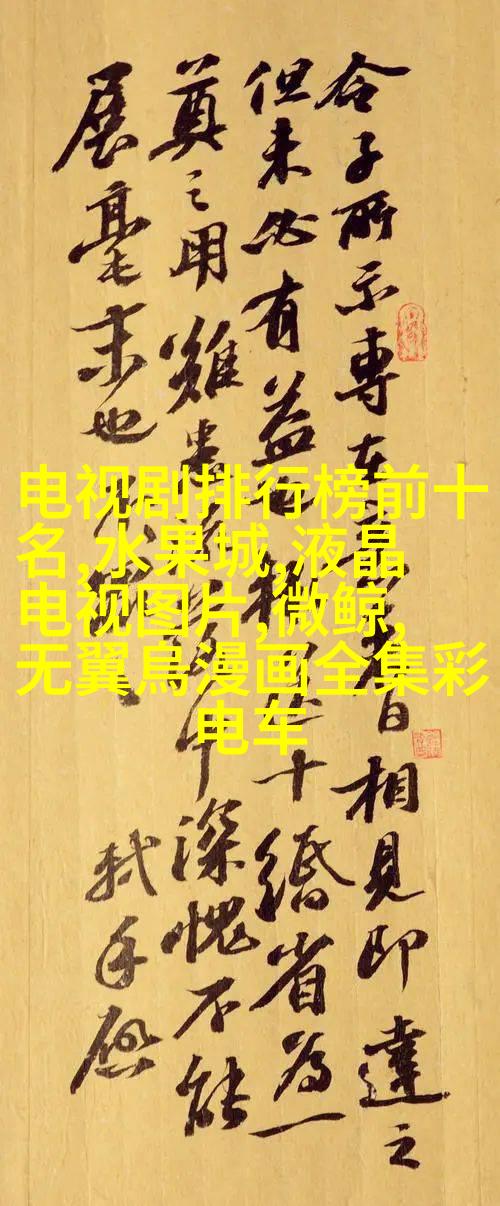 子所示專在日相見即達之
但未必有益十緡省為一
奠之用雖深愧不能
展毫末也
軾手啟
电视剧排行榜前十
名,水果城,液晶
电视图片,微鲸,
无翼鳥漫画全集彩
电车